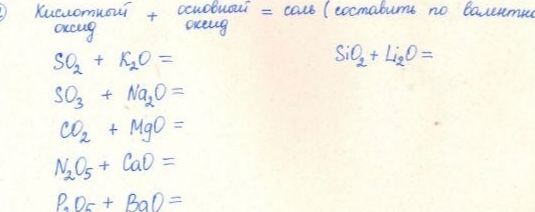 Кислотный оксид + основный оксид = соль (составить по
SO₂ + K₂O =
SiO₂ + Li₂O =
SO₃ + Na₂O =
CO₂ + MgO =
N₂O₅ + CaO =
P₂O₅ + BaO =